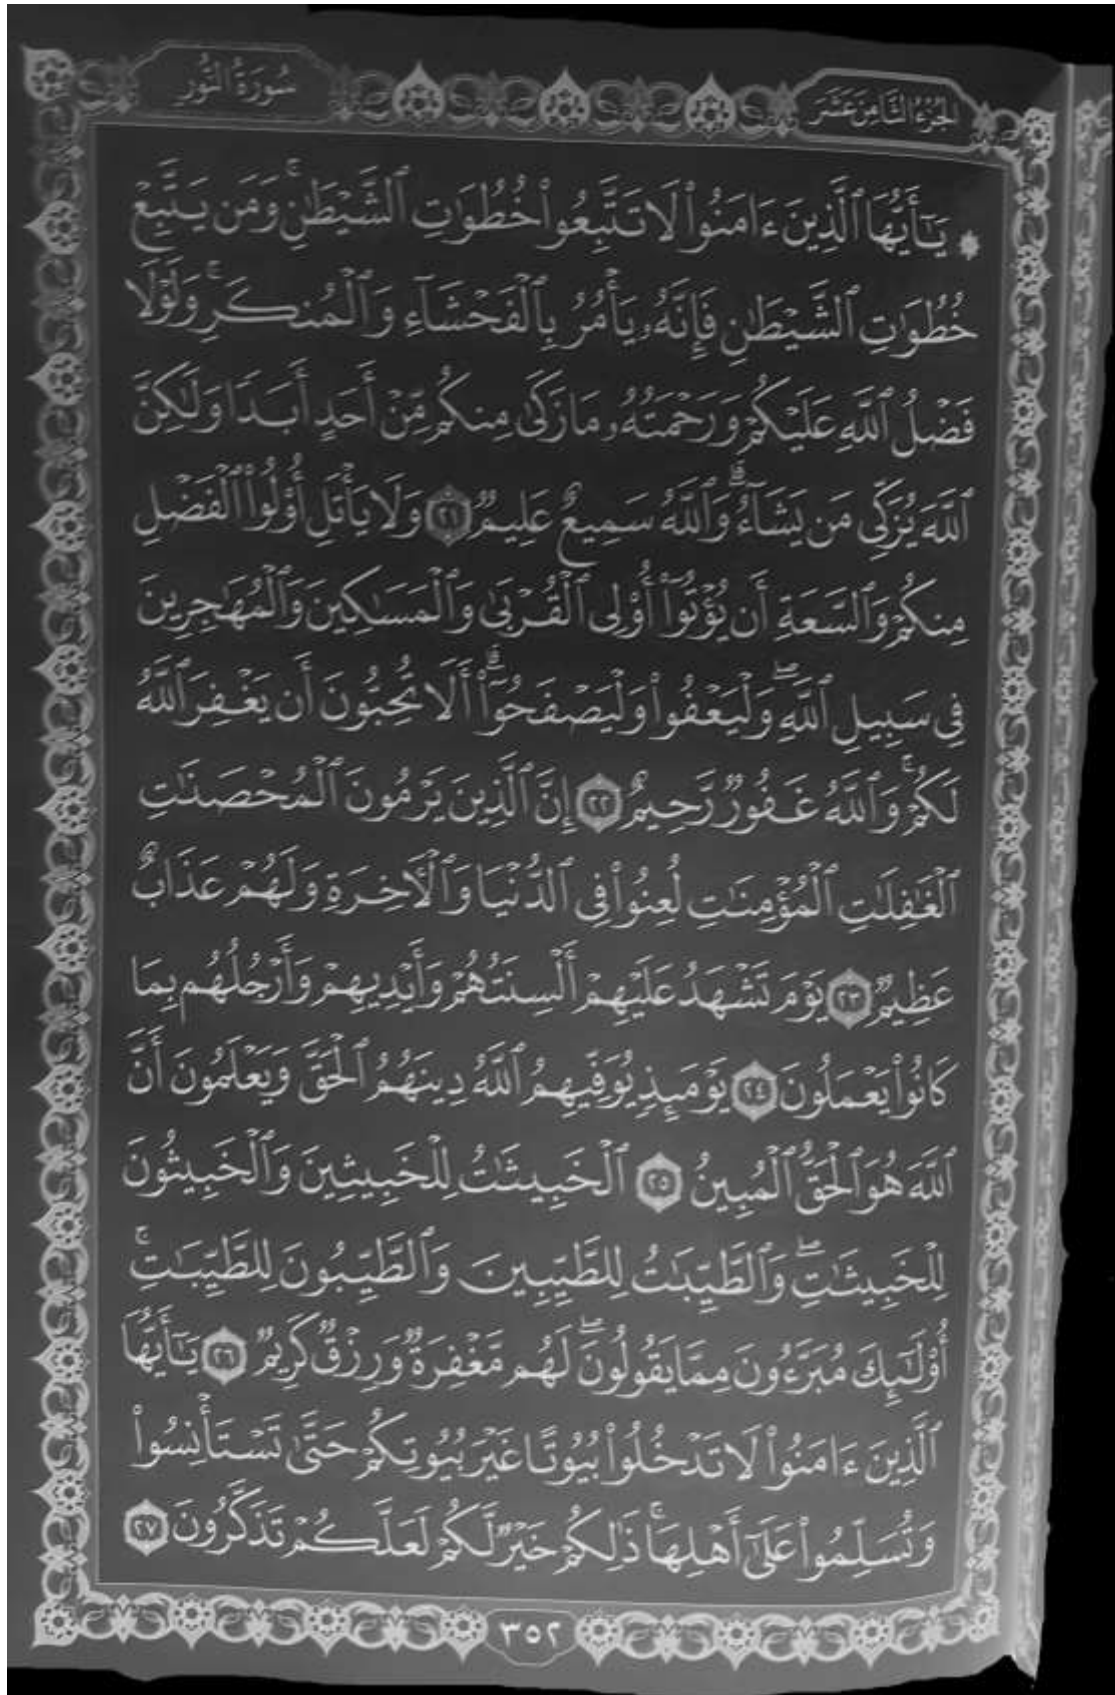 الجزء الثامن عشر
سورة النور
۞ يَـٰٓأَيُّهَا ٱلَّذِينَ ءَامَنُوا۟ لَا تَتَّبِعُوا۟ خُطُوَٰتِ ٱلشَّيْطَـٰنِ ۚ وَمَن يَتَّبِعْ
خُطُوَٰتِ ٱلشَّيْطَـٰنِ فَإِنَّهُۥ يَأْمُرُ بِٱلْفَحْشَآءِ وَٱلْمُنكَرِ ۚ وَلَوْلَا
فَضْلُ ٱللَّهِ عَلَيْكُمْ وَرَحْمَتُهُۥ مَا زَكَىٰ مِنكُم مِّنْ أَحَدٍ أَبَدًا وَلَـٰكِنَّ
ٱللَّهَ يُزَكِّى مَن يَشَآءُ ۗ وَٱللَّهُ سَمِيعٌ عَلِيمٌ ٢١ وَلَا يَأْتَلِ أُو۟لُوا۟ ٱلْفَضْلِ
مِنكُمْ وَٱلسَّعَةِ أَن يُؤْتُوٓا۟ أُو۟لِى ٱلْقُرْبَىٰ وَٱلْمَسَـٰكِينَ وَٱلْمُهَـٰجِرِينَ
فِى سَبِيلِ ٱللَّهِ ۖ وَلْيَعْفُوا۟ وَلْيَصْفَحُوٓا۟ ۗ أَلَا تُحِبُّونَ أَن يَغْفِرَ ٱللَّهُ
لَكُمْ ۚ وَٱللَّهُ غَفُورٌ رَّحِيمٌ ٢٢ إِنَّ ٱلَّذِينَ يَرْمُونَ ٱلْمُحْصَنَـٰتِ
ٱلْغَـٰفِلَـٰتِ ٱلْمُؤْمِنَـٰتِ لُعِنُوا۟ فِى ٱلدُّنْيَا وَٱلْـَٔاخِرَةِ وَلَهُمْ عَذَابٌ
عَظِيمٌ ٢٣ يَوْمَ تَشْهَدُ عَلَيْهِمْ أَلْسِنَتُهُمْ وَأَيْدِيهِمْ وَأَرْجُلُهُم بِمَا
كَانُوا۟ يَعْمَلُونَ ٢٤ يَوْمَئِذٍ يُوَفِّيهِمُ ٱللَّهُ دِينَهُمُ ٱلْحَقَّ وَيَعْلَمُونَ أَنَّ
ٱللَّهَ هُوَ ٱلْحَقُّ ٱلْمُبِينُ ٢٥ ٱلْخَبِيثَـٰتُ لِلْخَبِيثِينَ وَٱلْخَبِيثُونَ
لِلْخَبِيثَـٰتِ ۖ وَٱلطَّيِّبَـٰتُ لِلطَّيِّبِينَ وَٱلطَّيِّبُونَ لِلطَّيِّبَـٰتِ ۚ
أُو۟لَـٰٓئِكَ مُبَرَّءُونَ مِمَّا يَقُولُونَ ۖ لَهُم مَّغْفِرَةٌ وَرِزْقٌ كَرِيمٌ ٢٦ يَـٰٓأَيُّهَا
ٱلَّذِينَ ءَامَنُوا۟ لَا تَدْخُلُوا۟ بُيُوتًا غَيْرَ بُيُوتِكُمْ حَتَّىٰ تَسْتَأْنِسُوا۟
وَتُسَلِّمُوا۟ عَلَىٰٓ أَهْلِهَا ۚ ذَٰلِكُمْ خَيْرٌ لَّكُمْ لَعَلَّكُمْ تَذَكَّرُونَ ٢٧
٣٥٢